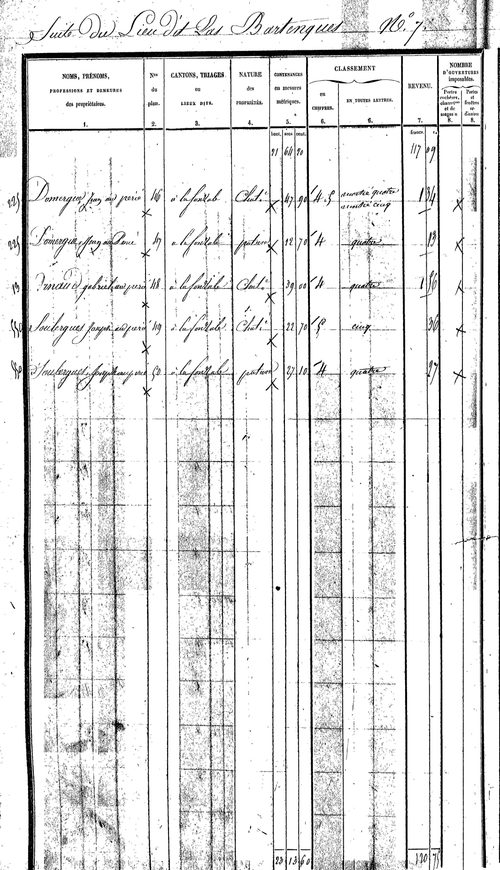 Suite du Lieu dit Las Bartenques N.° 7.
NOMS, PRÉNOMS, PROFESSIONS ET DEMEURES des propriétaires. 1.
Nos du plan. 2.
CANTONS, TRIAGES ou LIEUX DITS. 3.
NATURE des PROPRIÉTÉS. 4.
CONTENANCES en mesures métriques. 5.
CLASSEMENT
en CHIFFRES. 6.
EN TOUTES LETTRES. 6.
REVENU. 7.
NOMBRE D'OUVERTURES imposables.
Portes 8.
Portes et fenêtres ordinaires 8.
hect. ares cent. francs. c.
21 64 20 117 09
225 Domergue 46 à la fontale Chat. 47 90 4.5 moitié quatre moitié cinq 1 34
225 Domergue 47 à la fontale pature 12 70 4 quatre 13
13 gabriel 48 à la fontale Chat. 39 00 4 quatre 1 56
Soulergues joseph 49 à la fontale Chat. 22 70 5 cinq 36
Soulergues joseph 50 à la fontale pature 27 10 4 quatre 27
23 13 60 120 75